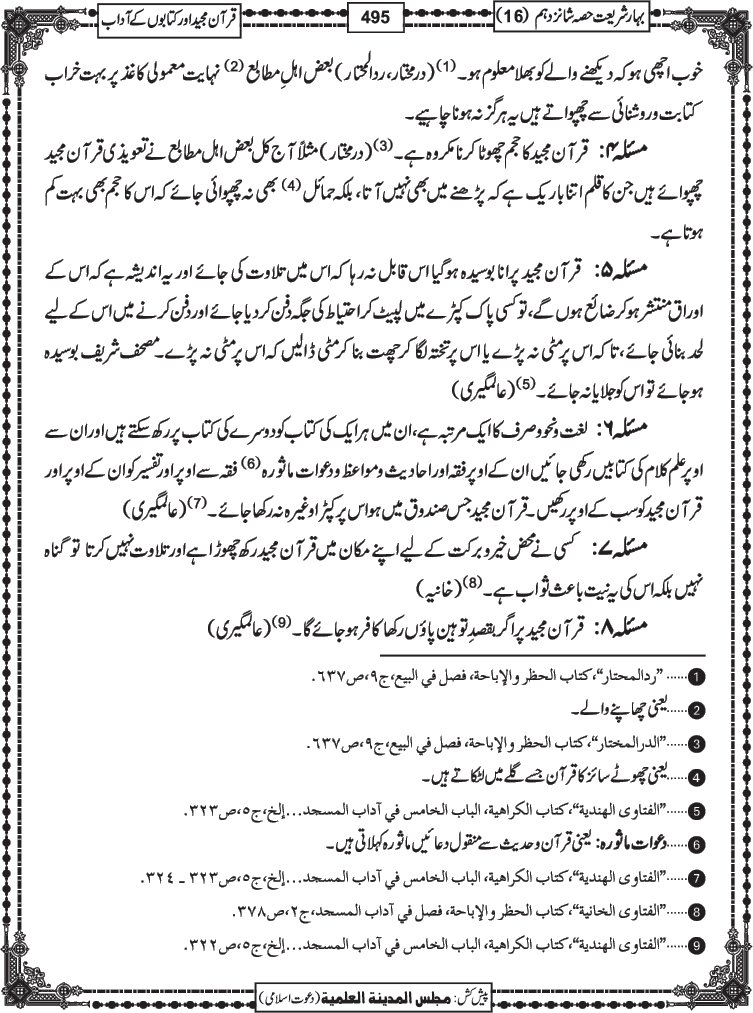 بہارِ شریعت حصہ شانزدہم (16)
495
قرآن مجید اور کتابوں کے آداب
خوب اچھی ہو کہ دیکھنے والے کو بھلا معلوم ہو۔(1) (درمختار، ردالمحتار) بعض اہلِ مطابع (2) نہایت معمولی کاغذ پر بہت خراب
کتابت و روشنائی سے چھپواتے ہیں یہ ہرگز نہ ہونا چاہیے۔
مسئلہ ۴: قرآن مجید کا حجم چھوٹا کرنا مکروہ ہے۔(3) (درمختار) مثلاً آج کل بعض اہل مطابع نے تعویذی قرآن مجید
چھپوائے ہیں جن کا قلم اتنا باریک ہے کہ پڑھنے میں بھی نہیں آتا، بلکہ حمائل (4) بھی نہ چھپوائی جائے کہ اس کا حجم بھی بہت کم
ہوتا ہے۔
مسئلہ ۵: قرآن مجید پرانا بوسیدہ ہوگیا اس قابل نہ رہا کہ اس میں تلاوت کی جائے اور یہ اندیشہ ہے کہ اس کے
اوراق منتشر ہو کر ضائع ہوں گے، تو کسی پاک کپڑے میں لپیٹ کر احتیاط کی جگہ دفن کر دیا جائے اور دفن کرنے میں اس کے لیے
لحد بنائی جائے، تاکہ اس پر مٹی نہ پڑے یا اس پر تختہ لگا کر چھت بنا کر مٹی ڈالیں کہ اس پر مٹی نہ پڑے۔ مصحف شریف بوسیدہ
ہو جائے تو اس کو جلایا نہ جائے۔(5) (عالمگیری)
مسئلہ ۶: لغت و نحو و صرف کا ایک مرتبہ ہے، ان میں ہر ایک کی کتاب کو دوسرے کی کتاب پر رکھ سکتے ہیں اور ان سے
اوپر علم کلام کی کتابیں رکھی جائیں ان کے اوپر فقہ اور احادیث و مواعظ و دعوات ماثورہ (6) فقہ سے اوپر اور تفسیر کو ان کے اوپر اور
قرآن مجید کو سب کے اوپر رکھیں۔ قرآن مجید جس صندوق میں ہو اس پر کپڑا وغیرہ نہ رکھا جائے۔(7) (عالمگیری)
مسئلہ ۷: کسی نے محض خیر و برکت کے لیے اپنے مکان میں قرآن مجید رکھ چھوڑا ہے اور تلاوت نہیں کرتا تو گناہ
نہیں بلکہ اس کی یہ نیت باعث ثواب ہے۔(8) (خانیہ)
مسئلہ ۸: قرآن مجید پر اگر بقصدِ توہین پاؤں رکھا کافر ہو جائے گا۔(9) (عالمگیری)
1 ......”ردالمحتار“، كتاب الحظر والإباحة، فصل في البيع، ج٩، ص٦٣٧.
2 ......یعنی چھاپنے والے۔
3 ......”الدرالمختار“، كتاب الحظر والإباحة، فصل في البيع، ج٩، ص٦٣٧.
4 ......یعنی چھوٹے سائز کا قرآن جسے گلے میں لٹکاتے ہیں۔
5 ......”الفتاوى الهندية“، كتاب الكراهية، الباب الخامس في آداب المسجد...إلخ، ج٥، ص٣٢٣.
6 ......دعوات ماثورہ: یعنی قرآن و حدیث سے منقول دعائیں ماثورہ کہلاتی ہیں۔
7 ......”الفتاوى الهندية“، كتاب الكراهية، الباب الخامس في آداب المسجد...إلخ، ج٥، ص٣٢٣ ـ ٣٢٤.
8 ......”الفتاوى الخانية“، كتاب الحظر والإباحة، فصل في آداب المسجد، ج٢، ص٣٧٨.
9 ......”الفتاوى الهندية“، كتاب الكراهية، الباب الخامس في آداب المسجد...إلخ، ج٥، ص٣٢٢.
پیش کش: مجلس المدينة العلمية (دعوت اسلامی)